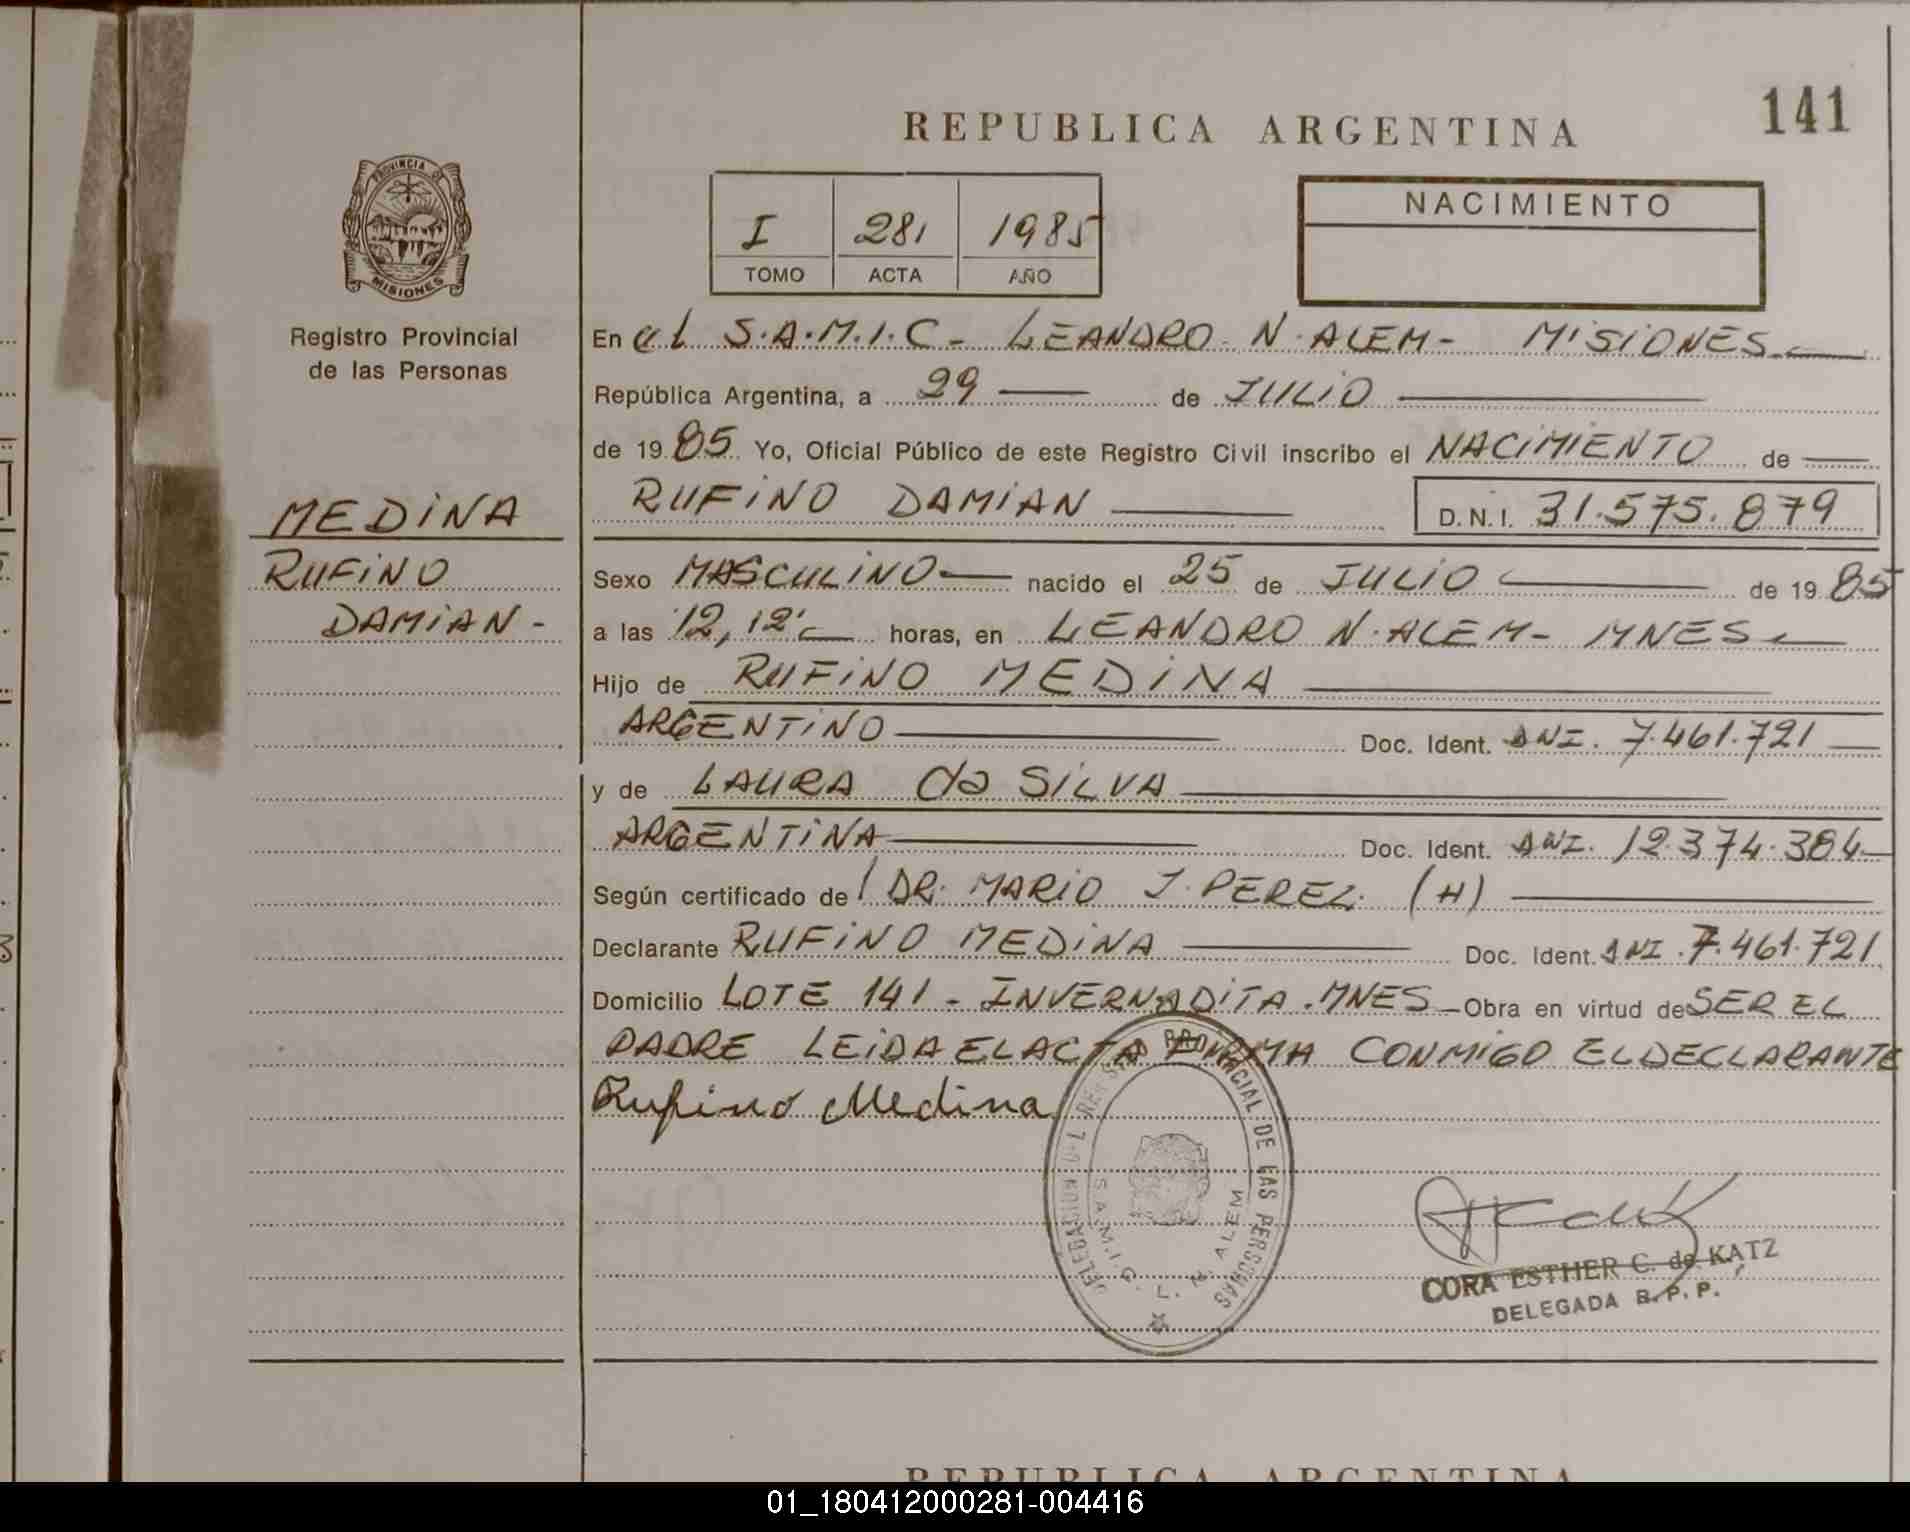 REPUBLICA ARGENTINA
141
PROVINCIA DE
MISIONES
Registro Provincial
de las Personas
I 281 1985
TOMO ACTA AÑO
NACIMIENTO
En el S.A.M.I.C - LEANDRO N. ALEM - MISIONES.
República Argentina, a 29 de JULIO
de 1985 Yo, Oficial Público de este Registro Civil inscribo el NACIMIENTO de
RUFINO DAMIAN D.N.I. 31.575.879
MEDINA
RUFINO
DAMIAN -
Sexo MASCULINO nacido el 25 de JULIO de 1985
a las 12,12' horas, en LEANDRO N. ALEM - MNES.
Hijo de RUFINO MEDINA
ARGENTINO Doc. Ident. DNI. 7.461.721
y de LAURA da SILVA
ARGENTINA Doc. Ident. DNI. 12.374.384
Según certificado de DR. MARIO J. PEREZ. (H)
Declarante RUFINO MEDINA Doc. Ident. DNI. 7.461.721
Domicilio LOTE 141 - INVERNADITA. MNES - Obra en virtud de SER EL
PADRE LEIDA EL ACTA FIRMA CONMIGO EL DECLARANTE
Rufino Medina
REGISTRO PROVINCIAL DE LAS PERSONAS
S.A.M.I.C. L. N. ALEM
CORA ESTHER C. de KATZ
DELEGADA B.P.P.
REPUBLICA ARGENTINA
01_180412000281-004416